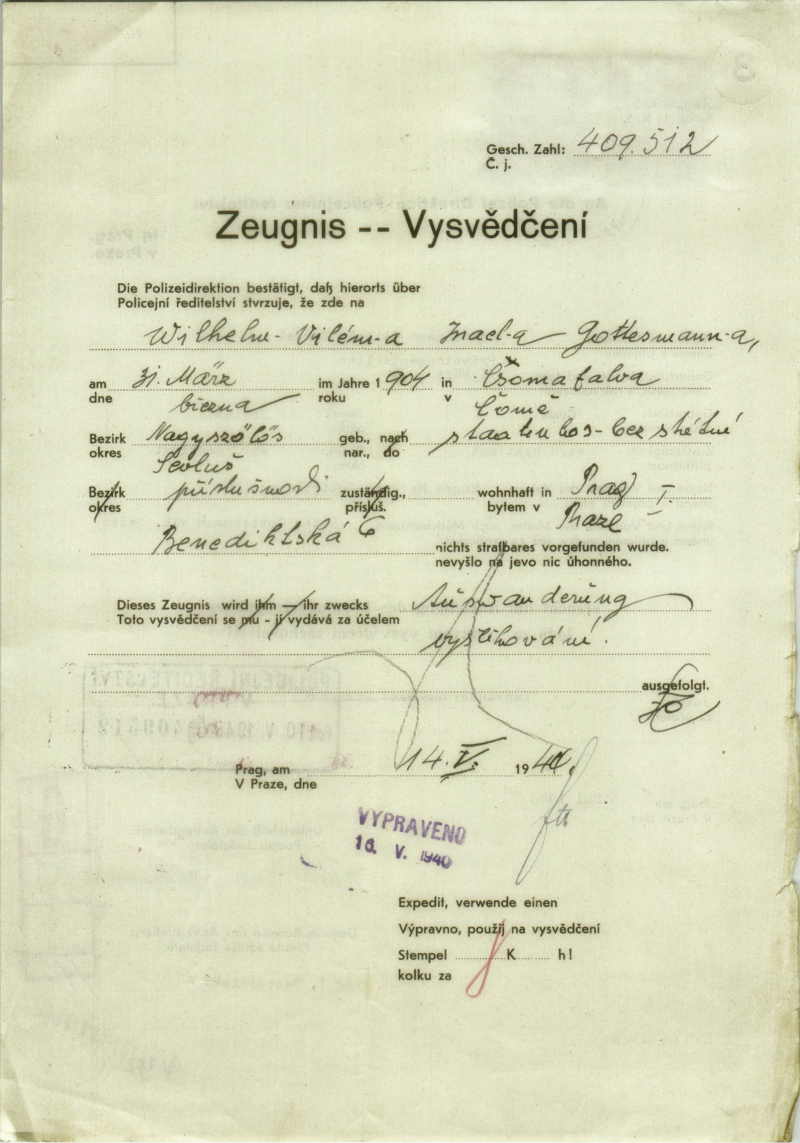 Gesch. Zahl: 409.512
Č. j.
Zeugnis -- Vysvědčení
Die Polizeidirektion bestätigt, daß hierorts über
Policejní ředitelství stvrzuje, že zde na
Wilhelm- Vilém-a Israel-a Gottesmann-a,
am 31. März im Jahre 1904 in Csomafalva
dne března roku v Čomě
Bezirk Nagyszőlős geb., nach staatenlos-bez státní
okres Sevluš nar., do
Bezirk příslušnosti zuständig., wohnhaft in Prag I.
okres přísluš. bytem v Praze
Benediktská 6 nichts strafbares vorgefunden wurde.
nevyšlo na jevo nic úhonného.
Dieses Zeugnis wird ihm — ihr zwecks Auswanderung
Toto vysvědčení se mu - jí vydává za účelem
vystěhování.
ausgefolgt.
Prag, am 14. V. 1940.
V Praze, dne
VYPRAVENO
16. V. 1940
Expedit, verwende einen
Výpravno, použij na vysvědčení
Stempel K h!
kolku za